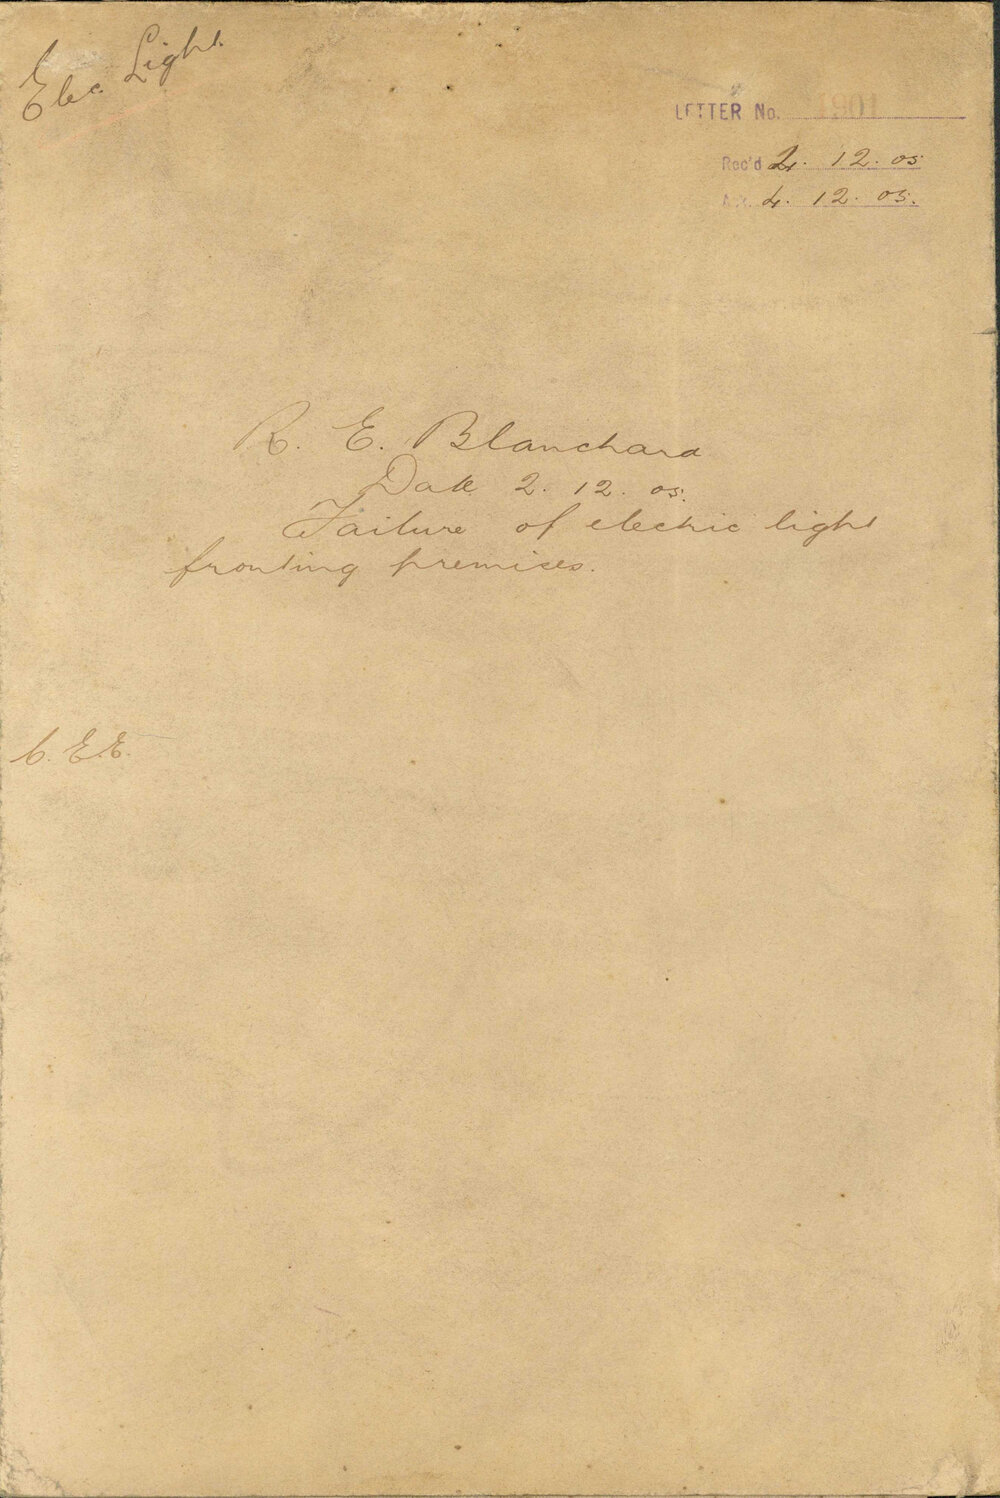 Elec. Light.
LETTER No. 1901
Rec'd 4. 12. 05.
Ack. 4. 12. 05.
R. E. Blanchard
Date 2. 12. 05.
Failure of electric light
fronting premises.
C. E. E.